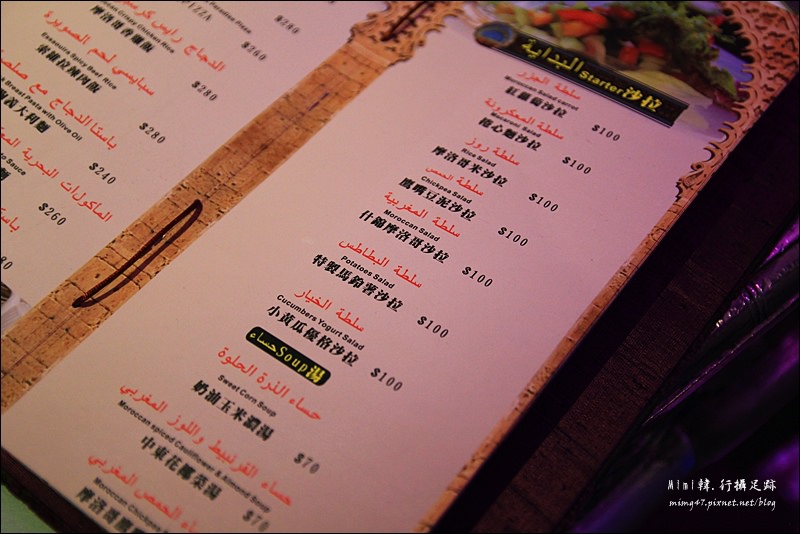 PIZZA
$280
Crispy Chicken Rice
摩洛哥香雞飯
$260
الدجاج رايس كريسبي
Essaouira Spicy Beef Rice
索維拉辣肉飯
$280
سبايسي لحم الصويرة
Breast Pasta with Olive Oil
義大利麵
$280
باستا الدجاج مع
to Sauce
$240
المأكولات البحرية
$260
باستا
البداية Starter沙拉
سلطة الجزر
Moroccan Salad carrot
紅蘿蔔沙拉 $100
سلطة المعكرونة
Macaroni Salad
捲心麵沙拉 $100
سلطة روز
Rice Salad
摩洛哥米沙拉 $100
سلطة الحمص
Chickpea Salad
鷹嘴豆泥沙拉 $100
سلطة المغربية
Moroccan Salad
什錦摩洛哥沙拉 $100
سلطة البطاطس
Potatoes Salad
特製馬鈴薯沙拉 $100
سلطة الخيار
Cucumbers Yogurt Salad
小黃瓜優格沙拉 $100
حساء Soup湯
حساء الذرة الحلوة
Sweet Corn Soup
奶油玉米濃湯 $70
حساء القرنبيط واللوز المغربي
Moroccan spiced Cauliflower & Almond Soup
中東花椰菜湯 $70
حساء الحمص المغربي
Moroccan Chickpea
摩洛哥鷹
Mini韓.行攝足跡
mimg47.pixnet.net/blog